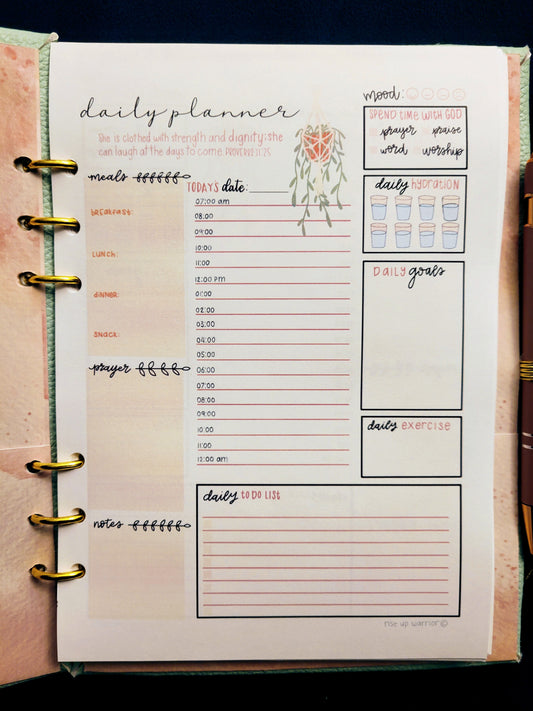 daily planner
mood:
She is clothed with strength and dignity; she
can laugh at the days to come. PROVERB 31:25
SPEND TIME WITH GOD
prayer praise
word worship
meals
TODAY'S date:
breakfast:
LUNCH:
DINNER:
SNACK:
prayer
notes
07:00 am
08:00
09:00
10:00
11:00
12:00 pm
01:00
02:00
03:00
04:00
05:00
06:00
07:00
08:00
09:00
10:00
11:00
12:00 am
daily HYDRATION
DAILY goals
daily exercise
daily TO DO LIST
rise up warrior©